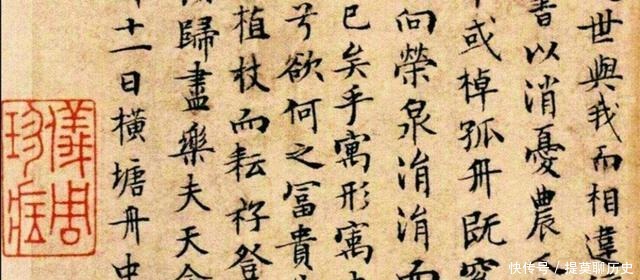 世與我而相違
書以消憂農
或棹孤舟既窈
向榮泉涓涓而
已矣乎寓形寓
兮欲何之冨貴
植杖而耘耔登
歸盡樂夫天命
十一日橫塘舟中
儀周珍藏
快传号 / 提莫聊历史